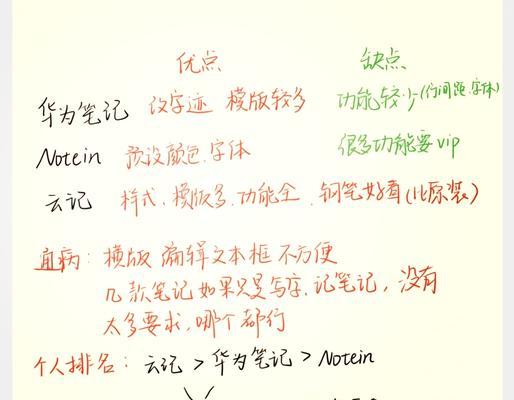 优点 缺点
华为笔记 改字迹 模版较多 功能较少(行间距.字体)
Notein 预设颜色.字体 很多功能要vip
云记 样式、模版多.功能全.钢笔好看(比原装)
通病: 模版 编辑文本框 不方便
几款笔记如果只是写字.记笔记,没有
太多要求,哪个都行
个人排名: 云记 > 华为笔记 > Notein